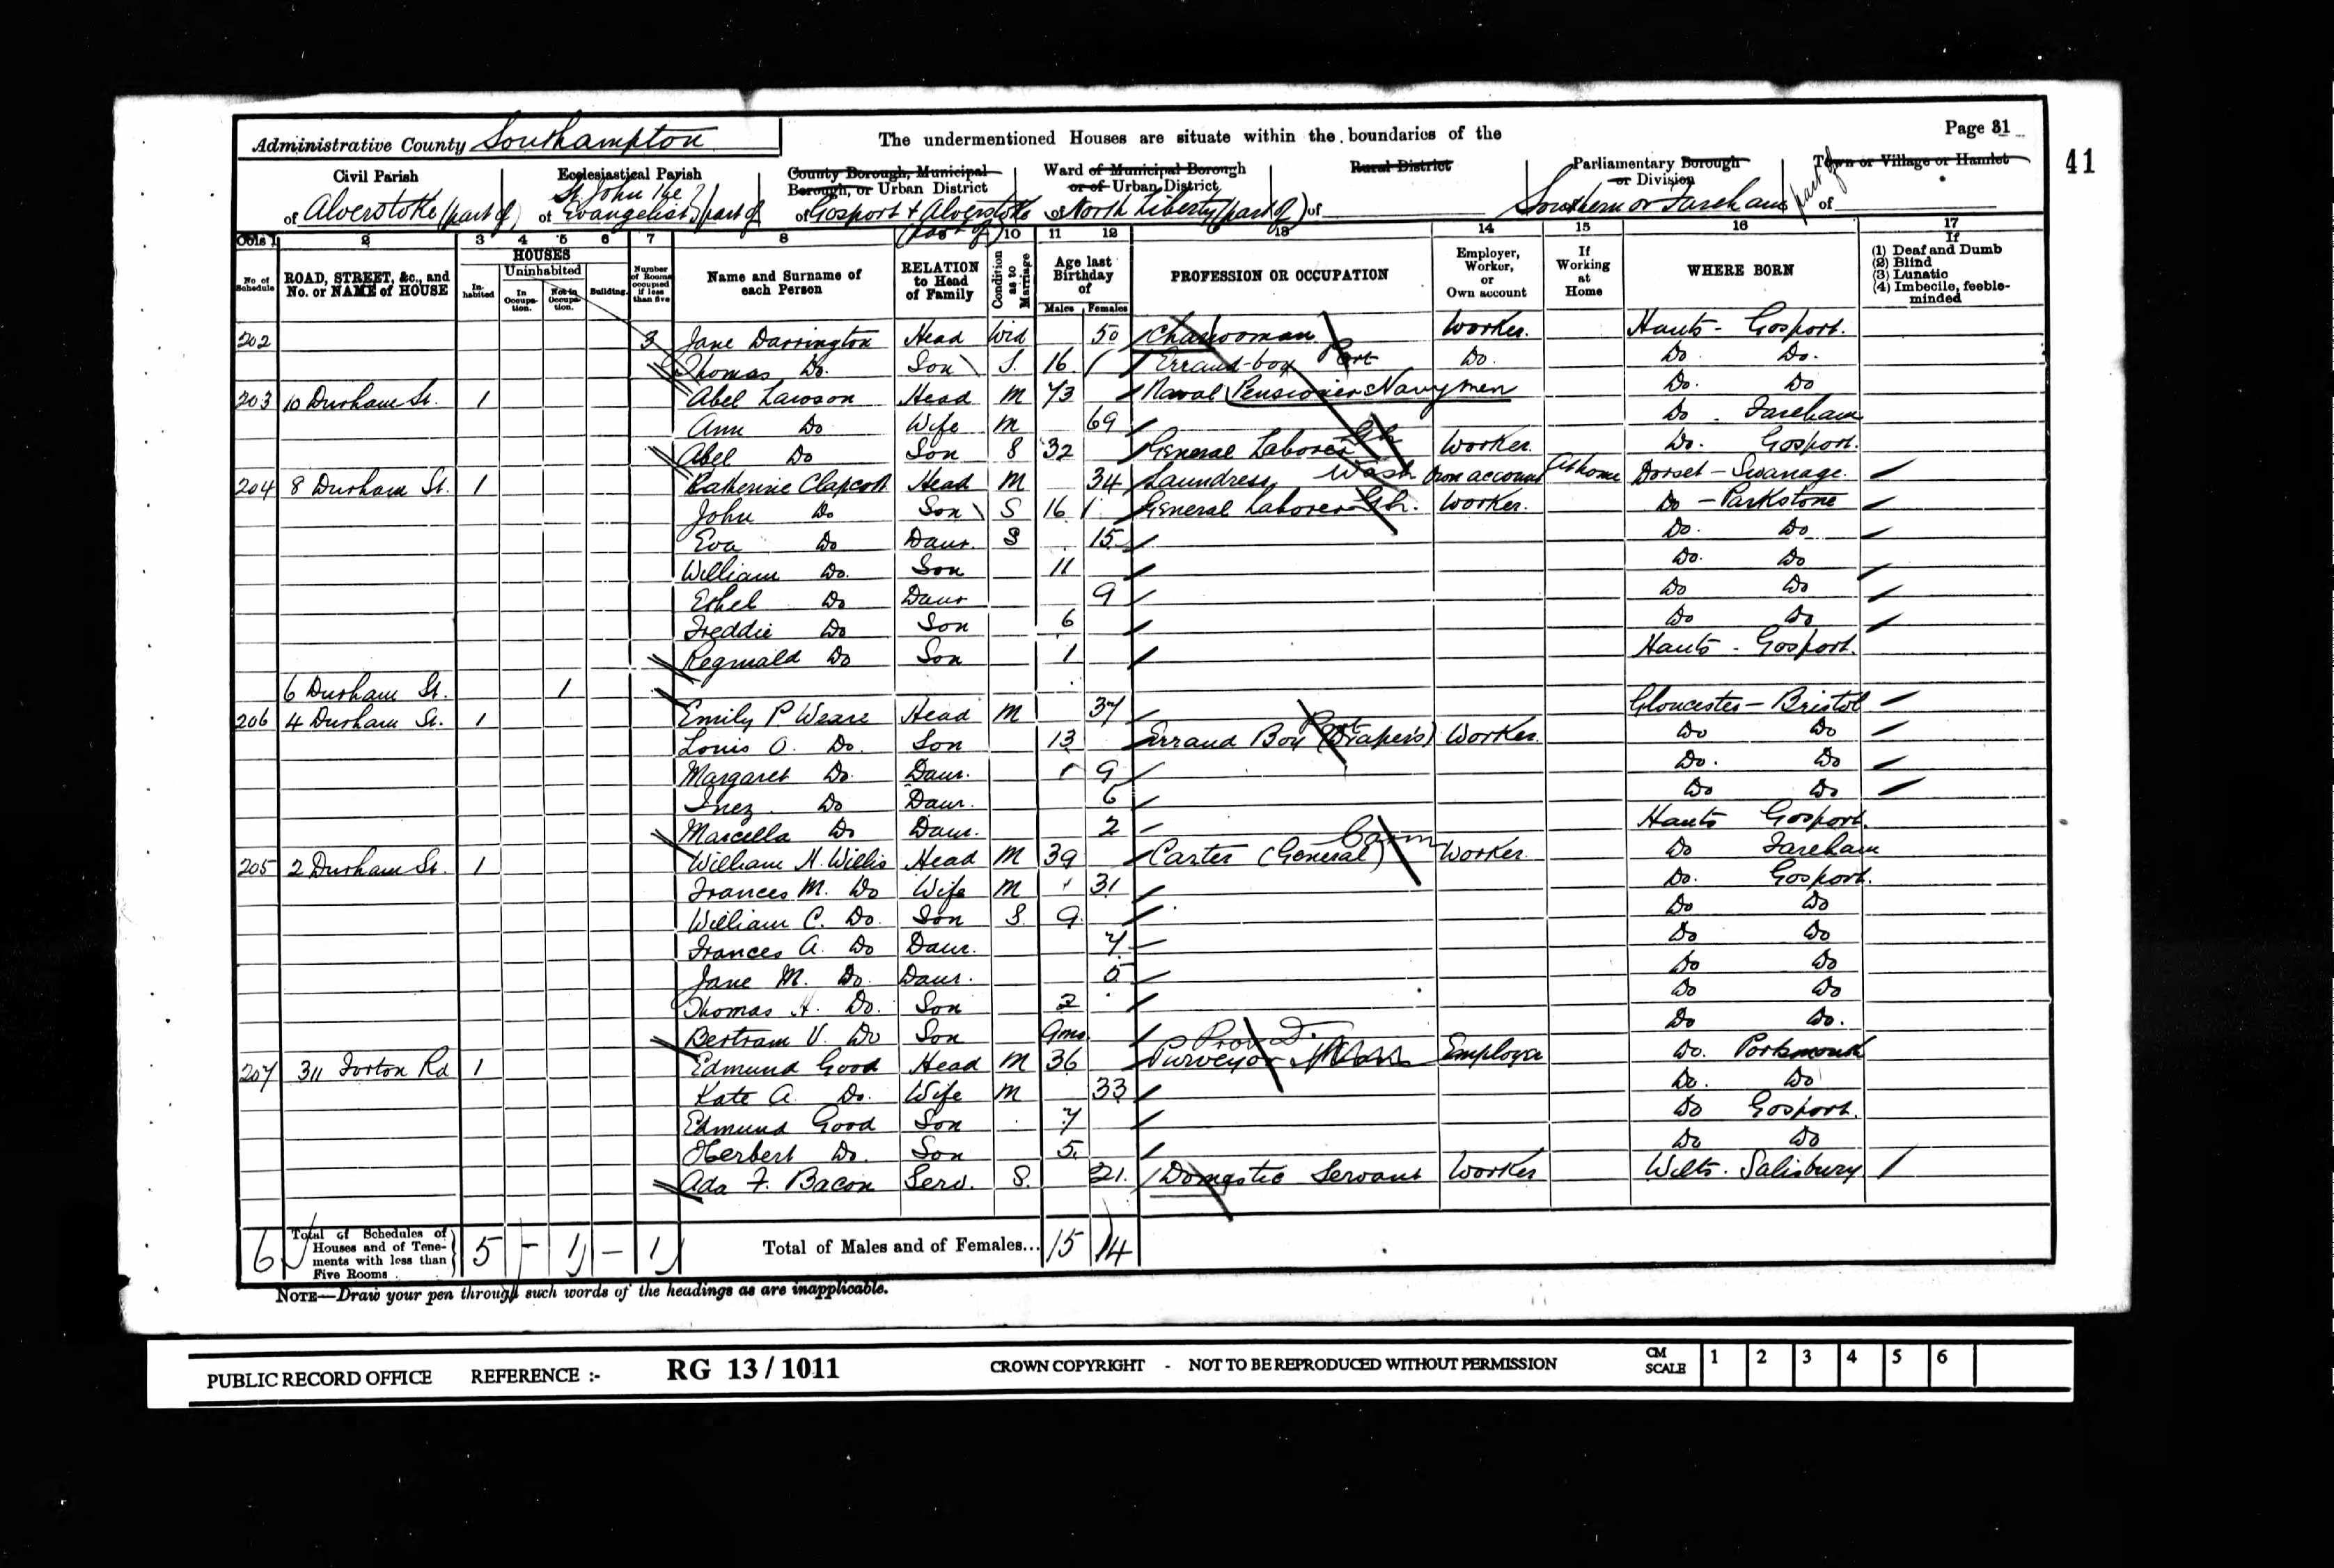 Administrative County Southampton
The undermentioned Houses are situate within the boundaries of the
Page 31
41
Civil Parish
of Alverstoke (part of)
Ecclesiastical Parish
of St John the Evangelist (part of
County Borough, Municipal Borough, or Urban District
of Gosport & Alverstoke (part of)
Ward of Municipal Borough or of Urban District
of North Liberty (part of)
Rural District
of
Parliamentary Borough or Division
Southern or Fareham part of
Town or Village or Hamlet
of
Cols 1 2 3 4 5 6 7 8 10 11 12 13 14 15 16 17
No of Schedule
ROAD, STREET, &c., and No. or NAME of HOUSE
HOUSES
Inhabited
Uninhabited
In Occupation.
Not in Occupation.
Building.
Number of Rooms occupied if less than five
Name and Surname of each Person
RELATION to Head of Family
Condition as to Marriage
Age last Birthday of
Males Females
PROFESSION OR OCCUPATION
Employer, Worker, or Own account
If Working at Home
WHERE BORN
If
(1) Deaf and Dumb
(2) Blind
(3) Lunatic
(4) Imbecile, feeble-minded
202 3 Jane Darrington Head Wid 50 Charwoman Worker. Hants - Gosport.
Thomas Do. Son S. 16 Errand-boy Port Do. Do. Do.
203 10 Durham St. 1 Abel Lawson Head M 73 Naval Pensioner Navy men Do. Do
Ann Do Wife M 69 Do. Fareham
Abel Do Son S 32 General Laborer G.L. Worker. Do. Gosport.
204 8 Durham St. 1 Katherine Clapcott Head M 34 Laundress Wash Own account At home Dorset - Swanage.
John Do Son S 16 General Laborer G.L. Worker. Do - Parkstone
Eva Do Daur. S 15 Do. Do
William Do. Son 11 Do. Do
Ethel Do Daur 9 Do Do
Freddie Do Son 6 Do Do
Reginald Do Son 1 Hants - Gosport.
6 Durham St. 1
206 4 Durham St. 1 Emily P Weare Head M 37 Gloucester - Bristol
Louis O. Do. Son 13 Errand Boy (Drapers) Port Worker. Do Do
Margaret Do. Daur. 9 Do. Do
Inez Do Daur. 6 Do Do
Marcella Do Daur. 2 Hants Gosport.
205 2 Durham St. 1 William H. Willis Head M 39 Carter (General) Carm Worker. Do Fareham
Frances M. Do Wife M 31 Do. Gosport.
William C. Do. Son S. 9 Do Do
Frances A. Do Daur. 7 Do Do
Jane M. Do. Daur. 5 Do Do
Thomas H. Do. Son 2 Do Do
Bertram V. Do Son 9mo Do Do.
207 311 Forton Rd 1 Edmund Good Head M 36 Purveyor Prov D. Employer Do. Portsmouth
Kate A. Do. Wife M 33 Do. Do
Edmund Good Son 7 Do Gosport.
Herbert Do. Son 5 Do Do
Ada F. Bacon Serv. S. 21. Domestic Servant Worker Wilts. Salisbury
6 Total of Schedules of Houses and of Tenements with less than Five Rooms 5 - 1 - 1 Total of Males and of Females... 15 14
NOTE—Draw your pen through such words of the headings as are inapplicable.
PUBLIC RECORD OFFICE REFERENCE :- RG 13 / 1011 CROWN COPYRIGHT - NOT TO BE REPRODUCED WITHOUT PERMISSION CM SCALE 1 2 3 4 5 6